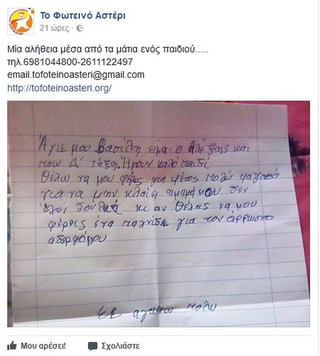 Το Φωτεινό Αστέρι
21 ώρες
Μία αλήθεια μέσα από τα μάτια ενός παιδιού.....
τηλ.6981044800-2611122497
email.tofoteinoasteri@gmail.com
http://tofoteinoasteri.org/
Άγιε μου Βασίλη είμαι ο Αλέξης και
πάω Α' τάξη. Ήμουν καλό παιδί
Θέλω να μου φέρις για φέτος πολύ φαγητό
για να μην κλαίει η μαμά μου δεν
έχει δουλιά κι αν θέλης να μου
φέρρις ένα παιχνίδι για τον άρρωστο
αδερφό μου
Σε αγαπάω πολύ
Μου αρέσει!
Σχολιάστε